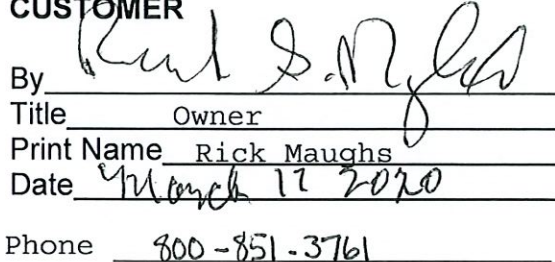 CUSTOMER
By
Title Owner
Print Name Rick Maughs
Date March 17 2020
Phone 800-851-3761